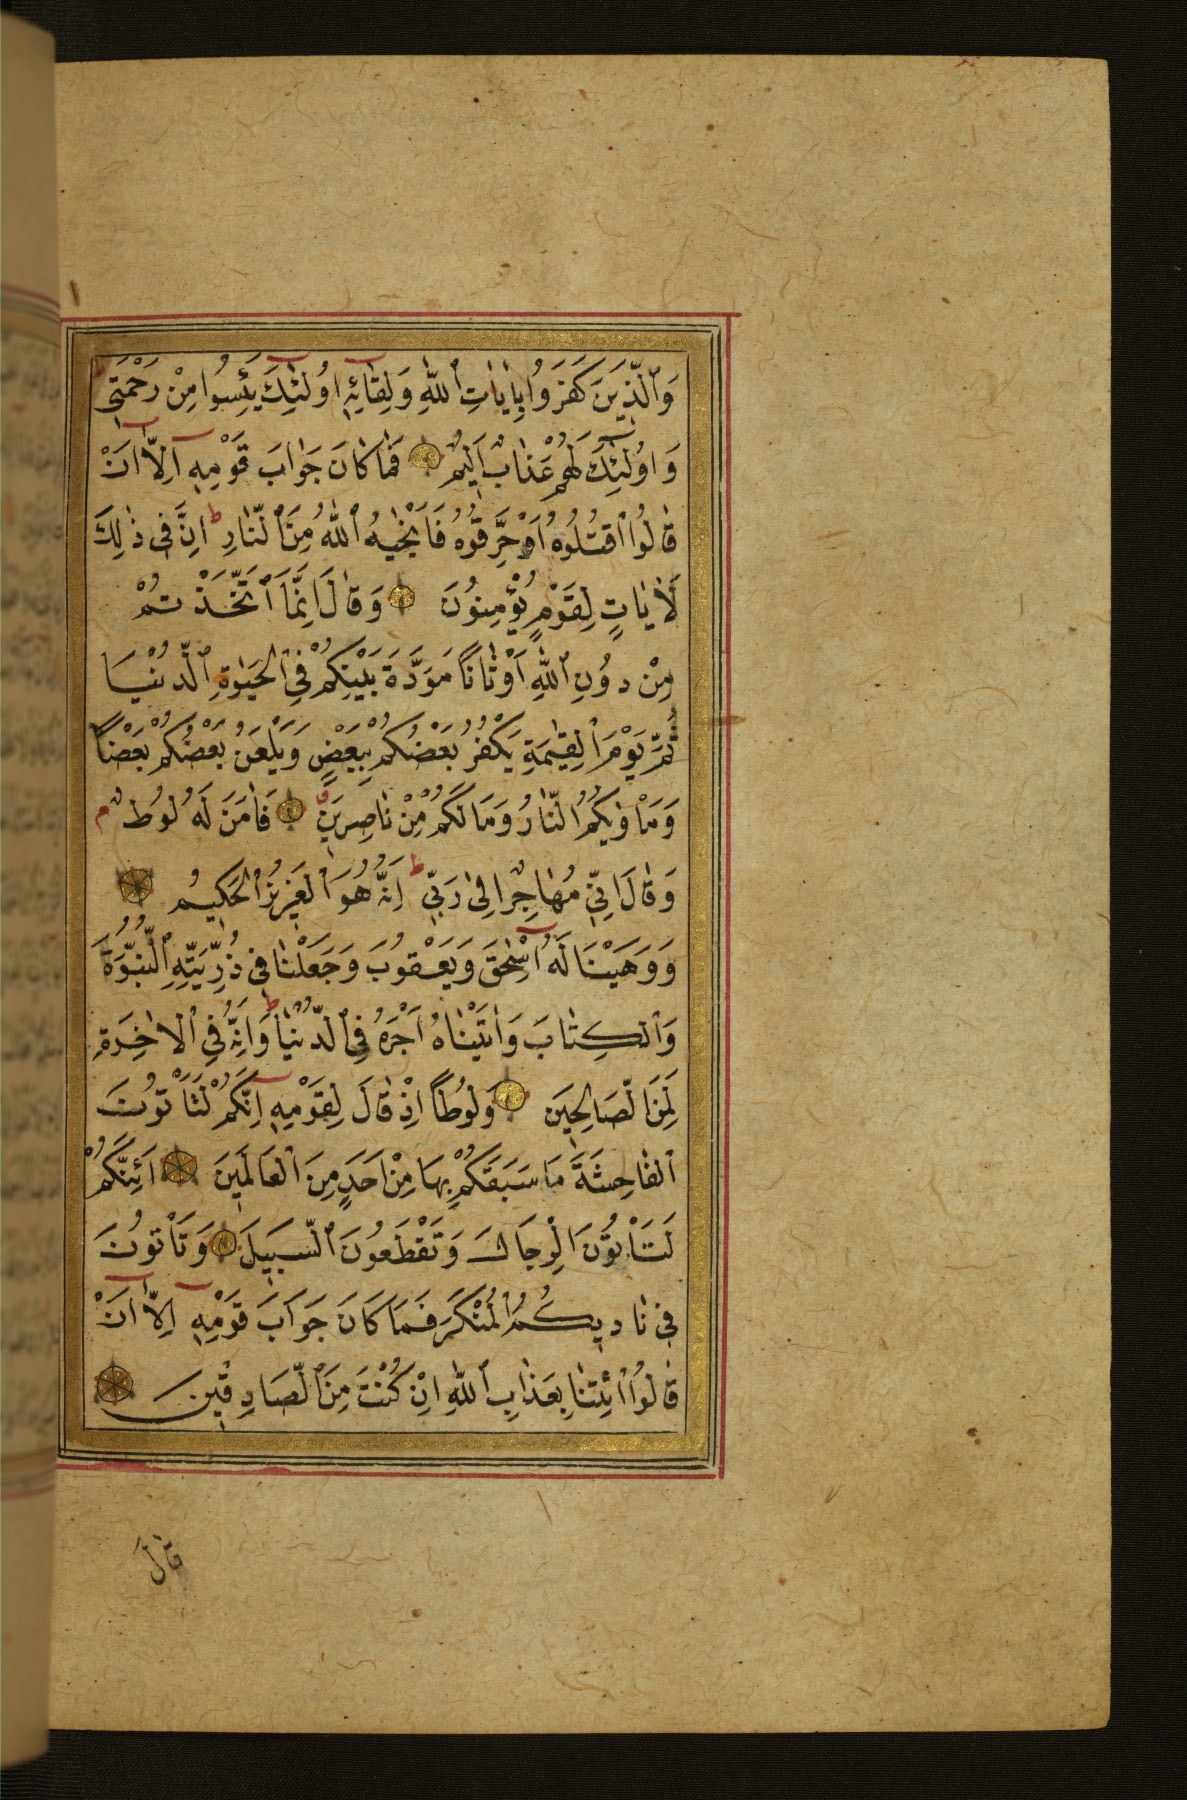 وَالَّذِينَ كَفَرُوا بِاٰيَاتِ اللّٰهِ وَلِقَائِهِ اُولٰئِكَ يَئِسُوا مِنْ رَحْمَتِى ط
وَاُولٰئِكَ لَهُمْ عَذَابٌ اَلِيمٌ فَمَا كَانَ جَوَابَ قَوْمِهِ اِلَّا اَنْ
قَالُوا اقْتُلُوهُ اَوْ حَرِّقُوهُ فَاَنْجٰيهُ اللّٰهُ مِنَ النَّارِ ط اِنَّ فِى ذٰلِكَ
لَاٰيَاتٍ لِقَوْمٍ يُؤْمِنُونَ وَقَالَ اِنَّمَا اتَّخَذْتُمْ
مِنْ دُونِ اللّٰهِ اَوْثَانًا مَوَدَّةَ بَيْنِكُمْ فِى الْحَيٰوةِ الدُّنْيَا
ثُمَّ يَوْمَ الْقِيٰمَةِ يَكْفُرُ بَعْضُكُمْ بِبَعْضٍ وَيَلْعَنُ بَعْضُكُمْ بَعْضًا
وَمَأْوٰيكُمُ النَّارُ وَمَا لَكُمْ مِنْ نَاصِرِينَ فَاٰمَنَ لَهُ لُوطٌ م
وَقَالَ اِنِّى مُهَاجِرٌ اِلٰى رَبِّى ط اِنَّهُ هُوَ الْعَزِيزُ الْحَكِيمُ
وَوَهَبْنَا لَهُ اِسْحٰقَ وَيَعْقُوبَ وَجَعَلْنَا فِى ذُرِّيَّتِهِ النُّبُوَّةَ
وَالْكِتَابَ وَاٰتَيْنَاهُ اَجْرَهُ فِى الدُّنْيَا ط وَاِنَّهُ فِى الْاٰخِرَةِ
لَمِنَ الصَّالِحِينَ وَلُوطًا اِذْ قَالَ لِقَوْمِهِ اِنَّكُمْ لَتَأْتُونَ
الْفَاحِشَةَ مَا سَبَقَكُمْ بِهَا مِنْ اَحَدٍ مِنَ الْعَالَمِينَ اَئِنَّكُمْ
لَتَأْتُونَ الرِّجَالَ وَتَقْطَعُونَ السَّبِيلَ وَتَأْتُونَ
فِى نَادِيكُمُ الْمُنْكَرَ فَمَا كَانَ جَوَابَ قَوْمِهِ اِلَّا اَنْ
قَالُوا ائْتِنَا بِعَذَابِ اللّٰهِ اِنْ كُنْتَ مِنَ الصَّادِقِينَ
قَالَ